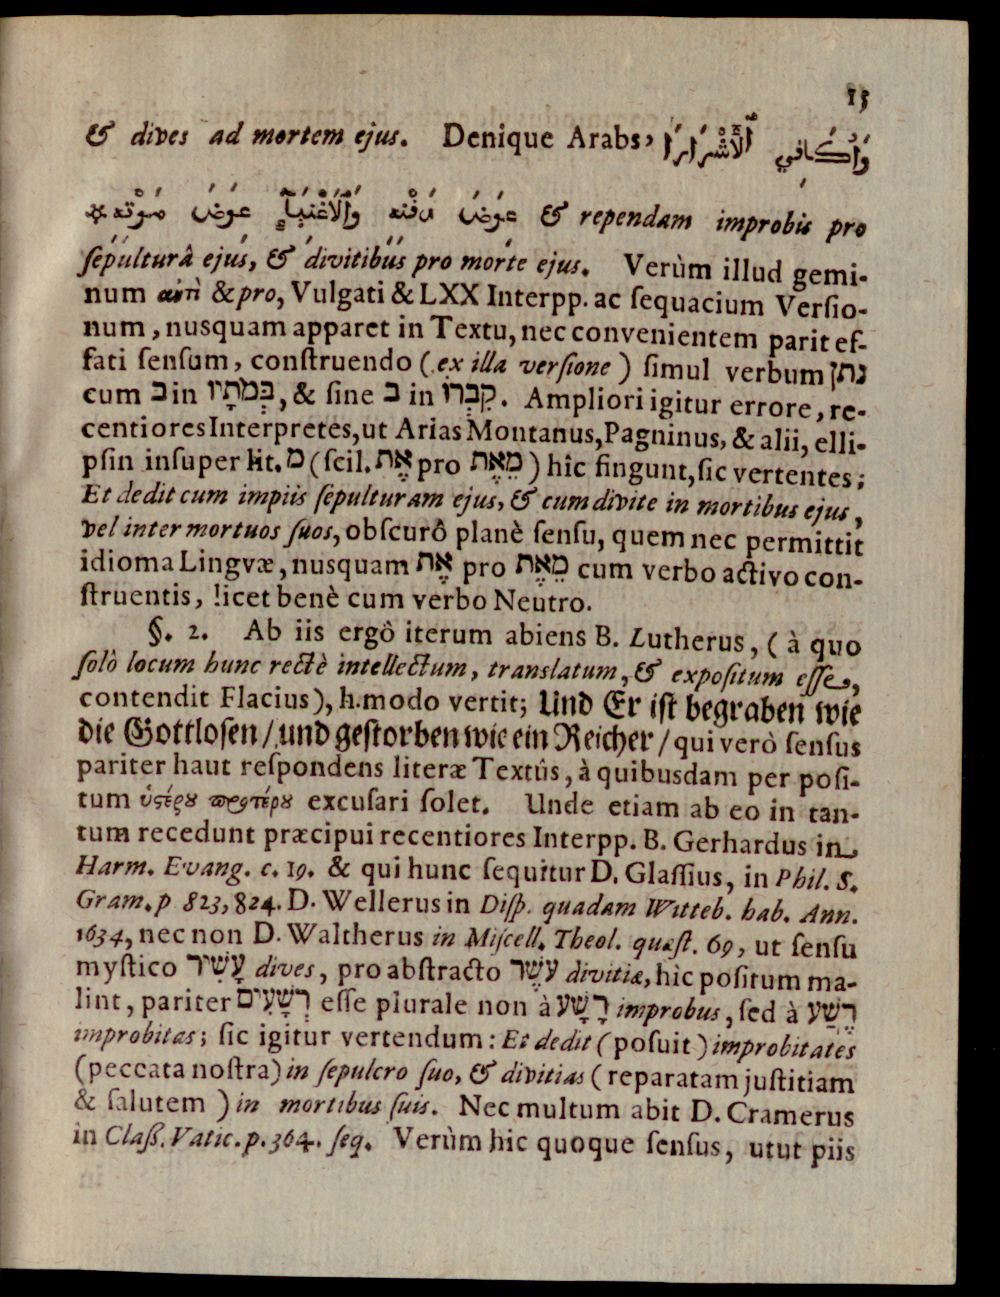 15
& dives ad mortem ejus. Denique Arabs, وَأُكَافِي ٱلْأَشْرَارَ
عِوَضَ دَفْنِهِ وَٱلْأَغْنِيَآءِ عِوَضَ مَوْتِهِ * & rependam improbis pro
sepulturâ ejus, & divitibus pro morte ejus. Verùm illud gemi-
num ἀντὶ & pro, Vulgati & LXX Interpp. ac sequacium Versio-
num, nusquam apparet in Textu, nec convenientem parit ef-
fati sensum, construendo (ex illa versione) simul verbum נתן
cum ב in בְּמֹתָיו, & sine ב in קִבְרוֹ. Ampliori igitur errore, re-
centiores Interpretes, ut Arias Montanus, Pagninus, & alii, elli-
psin insuper lit. מ (scil. אֶת pro מֵאֶת) hîc fingunt, sic vertentes;
Et dedit cum impiis sepulturam ejus, & cum divite in mortibus ejus,
vel inter mortuos suos, obscurô planè sensu, quem nec permittit
idioma Lingvæ, nusquam אֶת pro מֵאֶת cum verbo activo con-
struentis, licet benè cum verbo Neutro.
§. 2. Ab iis ergò iterum abiens B. Lutherus, (à quo
solò locum hunc rectè intellectum, translatum, & expositum esse,
contendit Flacius), h. modo vertit; Und Er ist begraben wie
die Gottlosen / und gestorben wie ein Reicher / qui verò sensus
pariter haut respondens literæ Textûs, à quibusdam per posi-
tum ὑστέρȣ προτέρȣ excusari solet. Unde etiam ab eo in tan-
tum recedunt præcipui recentiores Interpp. B. Gerhardus in
Harm. Evang. c. 19. & qui hunc sequitur D. Glassius, in Phil. S.
Gram. p 823, 824. D. Wellerus in Disp. quadam Witteb. hab. Ann.
1634, nec non D. Waltherus in Miscell. Theol. quæst. 69, ut sensu
mystico עָשִׁיר dives, pro abstracto עֹשֶׁר divitiæ, hîc positum ma-
lint, pariter רְשָׁעִים esse plurale non à רָשָׁע improbus, sed à רֶשַׁע
improbitas; sic igitur vertendum: Et dedit (posuit) improbitates
(peccata nostra) in sepulcro suo, & divitias (reparatam justitiam
& salutem) in mortibus suis. Nec multum abit D. Cramerus
in Claß. Vatic. p. 364. seq. Verùm hic quoque sensus, utut piis